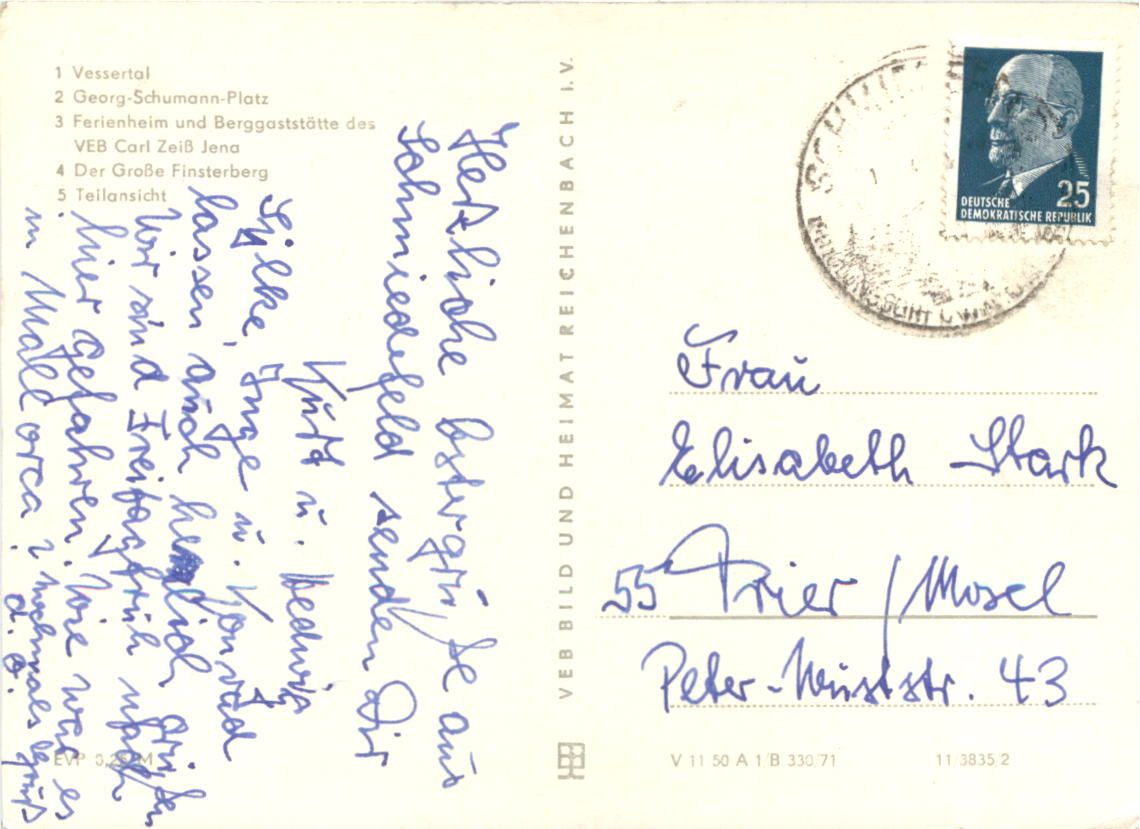 1 Vessertal
2 Georg-Schumann-Platz
3 Ferienheim und Berggaststätte des
VEB Carl Zeiß Jena
4 Der Große Finsterberg
5 Teilansicht
Herzliche Ostergrüße aus
Schmiedefeld senden Dir
Kurt u. Hedwig
Silke, Inge u. Konrad
lassen auch herzlich grüßen
Wir sind Freitagfrüh nach
hier gefahren. Wie war es
in Mallorca? nochmals Gruß
d. O.
EVP 0,25 M
VEB BILD UND HEIMAT REICHENBACH I. V.
DEUTSCHE
DEMOKRATISCHE REPUBLIK
25
Frau
Elisabeth Stark
55 Trier / Mosel
Peter-Wustстr. 43
V 11 50 A 1/B 330/71
11/3835/2